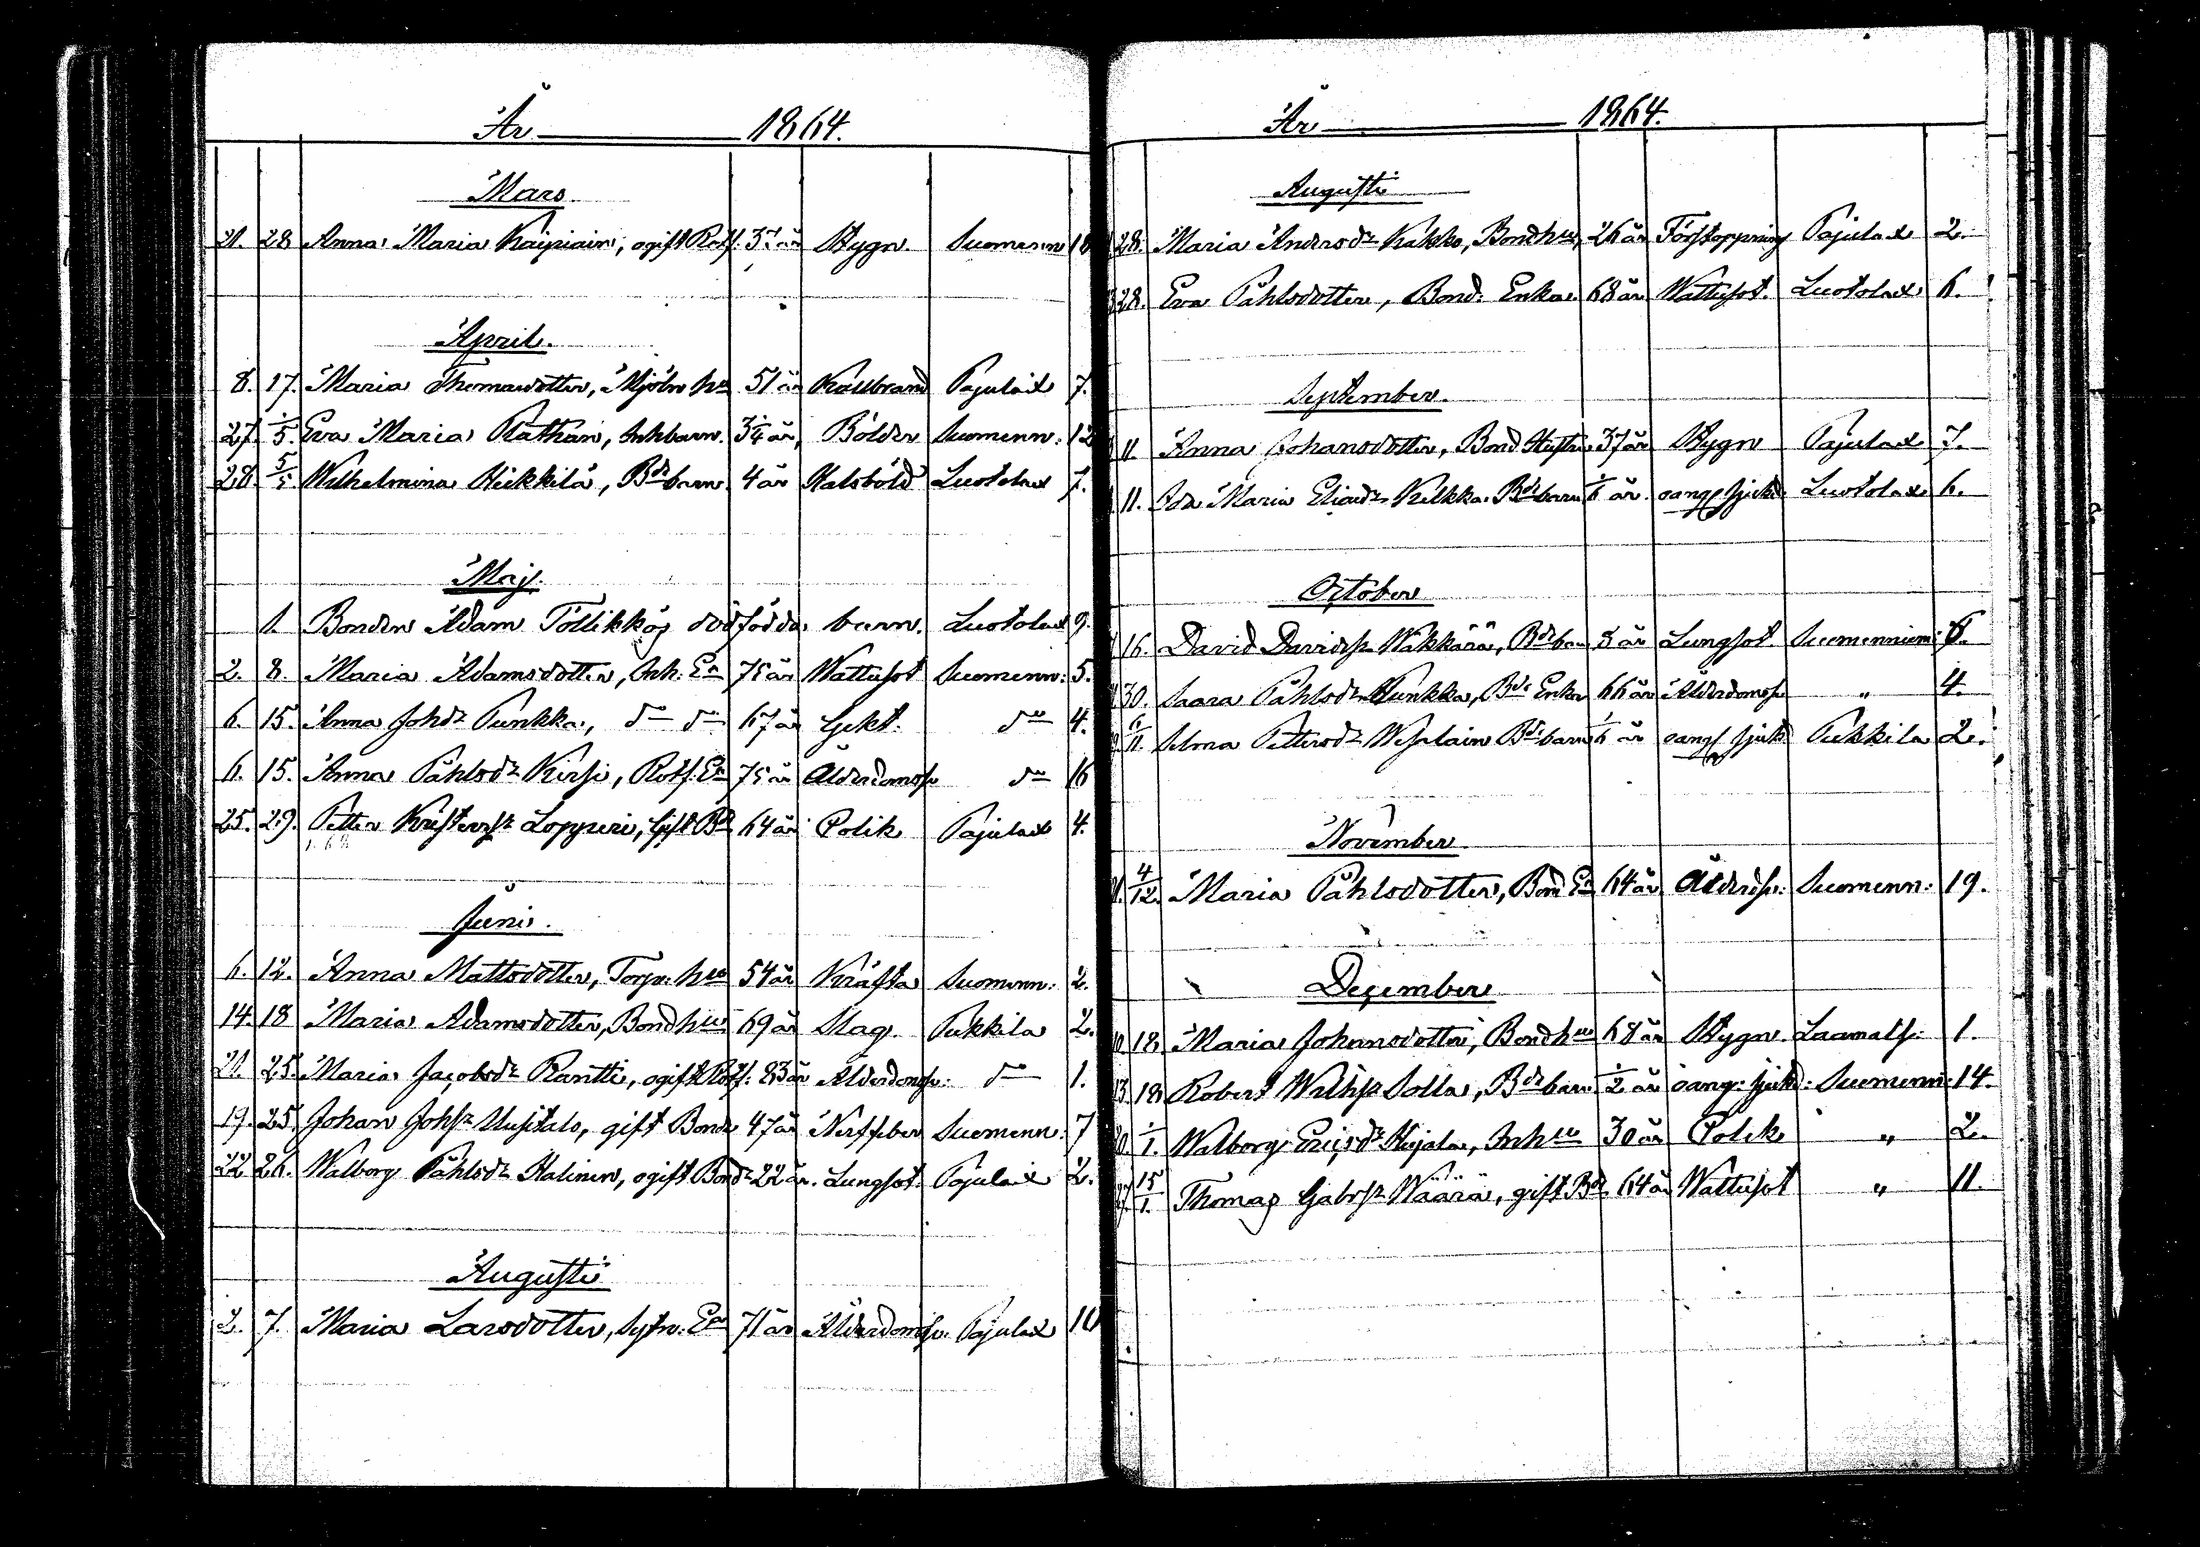 År 1864.
Mars
21. 28 Anna Maria Kaipiain, ogift Rotf. 37 år Stygn. Suomenn 10
April.
8. 17. Maria Thomasdotter, Mjöln. hu 51 år Kallbrand Pajulax 7.
27. 1/5. Eva Maria Rathan, Inhbarn. 3/4 år, Bölder Suomenn: 12
28. 5/5 Wilhelmina Heikkilä, Bdebarn 4 år Halsböld Luotolax 7.
Maj.
1. Bonden Adam Töllikkös dödfödda barn. Luotolax 9.
2. 8. Maria Adamsdotter, Inh. Ea 75 år Wattusot Suomenn: 5.
6. 15. Anna Johdr Punkka, do do 67 år Gikt. do 4.
6. 15. Anna Påhlsdr Kirsi, Rotf. Ea 75 år Ålderdomsf. do 16
25. 29. Petter Kristersr Lopperi, gift Bd 64 år Colik Pajulax 4.
Juni.
6. 12. Anna Mattsdotter, Torp. hu 54 år Kräfta Suomenn: 2.
14. 18 Maria Adamsdotter, Bondhu 69 år Slag. Pukkila 2.
21. 25. Maria Jacobsdr Rantti, ogift Rotf. 83 år Ålderdomsf: do 1.
19. 25 Johan Johsr Uusitalo, gift Bonde 47 år Nerffeber Suomenn: 7
22 26. Walborg Påhlsdr Halinen, ogift Bondr 22 år. Lungsot. Pajulax 2.
Augusti
2. 7. Maria Larsdotter, Sytn. Ea 71 år Ålderdomsf. Pajulax 10
År 1864.
Augusti
28. Maria Andersdr Kakko, Bondhu, 26 år Förstoppning Pajulax 2.
28. Eva Påhlsdotter, Bond. Enka. 68 år Wattusot. Luotolax 6.
September.
11 Anna Johansdotter, Bond Hustru 37 år Stygn Pajulax 7.
11. Ida Maria Eliasdr Kilkka. Bdebarn 1/6 år. oang. sjukd. Luotolax 6.
October
16. David Davidsr Wäkkärä, Bdebarn 3 år Lungsot Suomenniem:
30. Saara Påhlsdr Hunkka, Bde Enka 66 år Ålderdomsf „ 4.
6/11. Selma Pettersdr Wesalain Bdebarn 1/6 år oang. sjukd. Pukkila 2.
November
4/12. Maria Påhlsdotter, Bond Ea 64 år Ålderdsf: Suomenn: 19.
December
18. Maria Johansdotter, Bondhu 68 år Stygn. Laamats: 1.
13 18 Robert Wilhsr Solla, Bdebarn 1/2 år oang: sjukd: Suomenn: 14.
20. 1/1. Walborg Ericsdr Kujala, Inhhu 30 år Colik „ 2.
27. 15/1. Thomas Gabrsr Wäärä, gift Bd 64 år Wattusot „ 11.